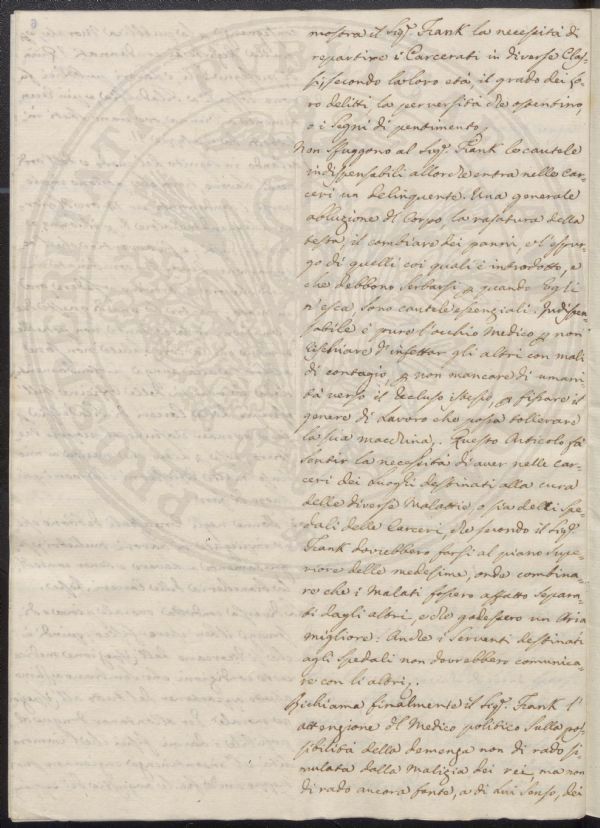 mostra il Sig.r Frank la necessità di
repartire i Carcerati in diverse Clas-
si; secondo la loro età, il grado dei lo-
ro delitti la perversità che ostentino,
o i segni di pentimento,
Non sfuggono al Sig.r Frank le cautele
indispensabili allorchè entra nelle Car-
ceri un delinquente. Una generale
abluzione del Corpo, la rasatura della
testa, il cambiare dei panni, e l'espur-
go di quelli coi quali è introdotto, e
che debbono serbarsi p quando egli
n'esca, sono cautele essenziali. Indispen-
sabile è pure l'occhio Medico p non
rischiare d'infettar gli altri con mali
di contagio, p non mancare di umani-
tà verso il Recluso istesso, p fissare il
genere di Lavoro che possa tollerare
la sua macchina,. Questo Articolo fà
sentir la necessità di aver nelle Car-
ceri dei Luoghi destinati alla cura
delle diverse Malattie, o sia delli Spe-
dali delle Carceri, che secondo il Sig.r
Frank dovrebbero farsi al piano supe-
riore delle medesime, onde combina-
re che i Malati fossero affatto separa-
ti dagli altri, e che godessero un Aria
migliore: Anche i serventi destinati
agli spedali non dovrebbero comunica-
re con li altri,.
Richiama finalmente il Sig.r Frank l'
attenzione del Medico politico sulla pos-
sibilità della demenza non di rado si-
mulata dalla malizia dei rei, ma non
di rado ancora fonte, a di lui senso, dei